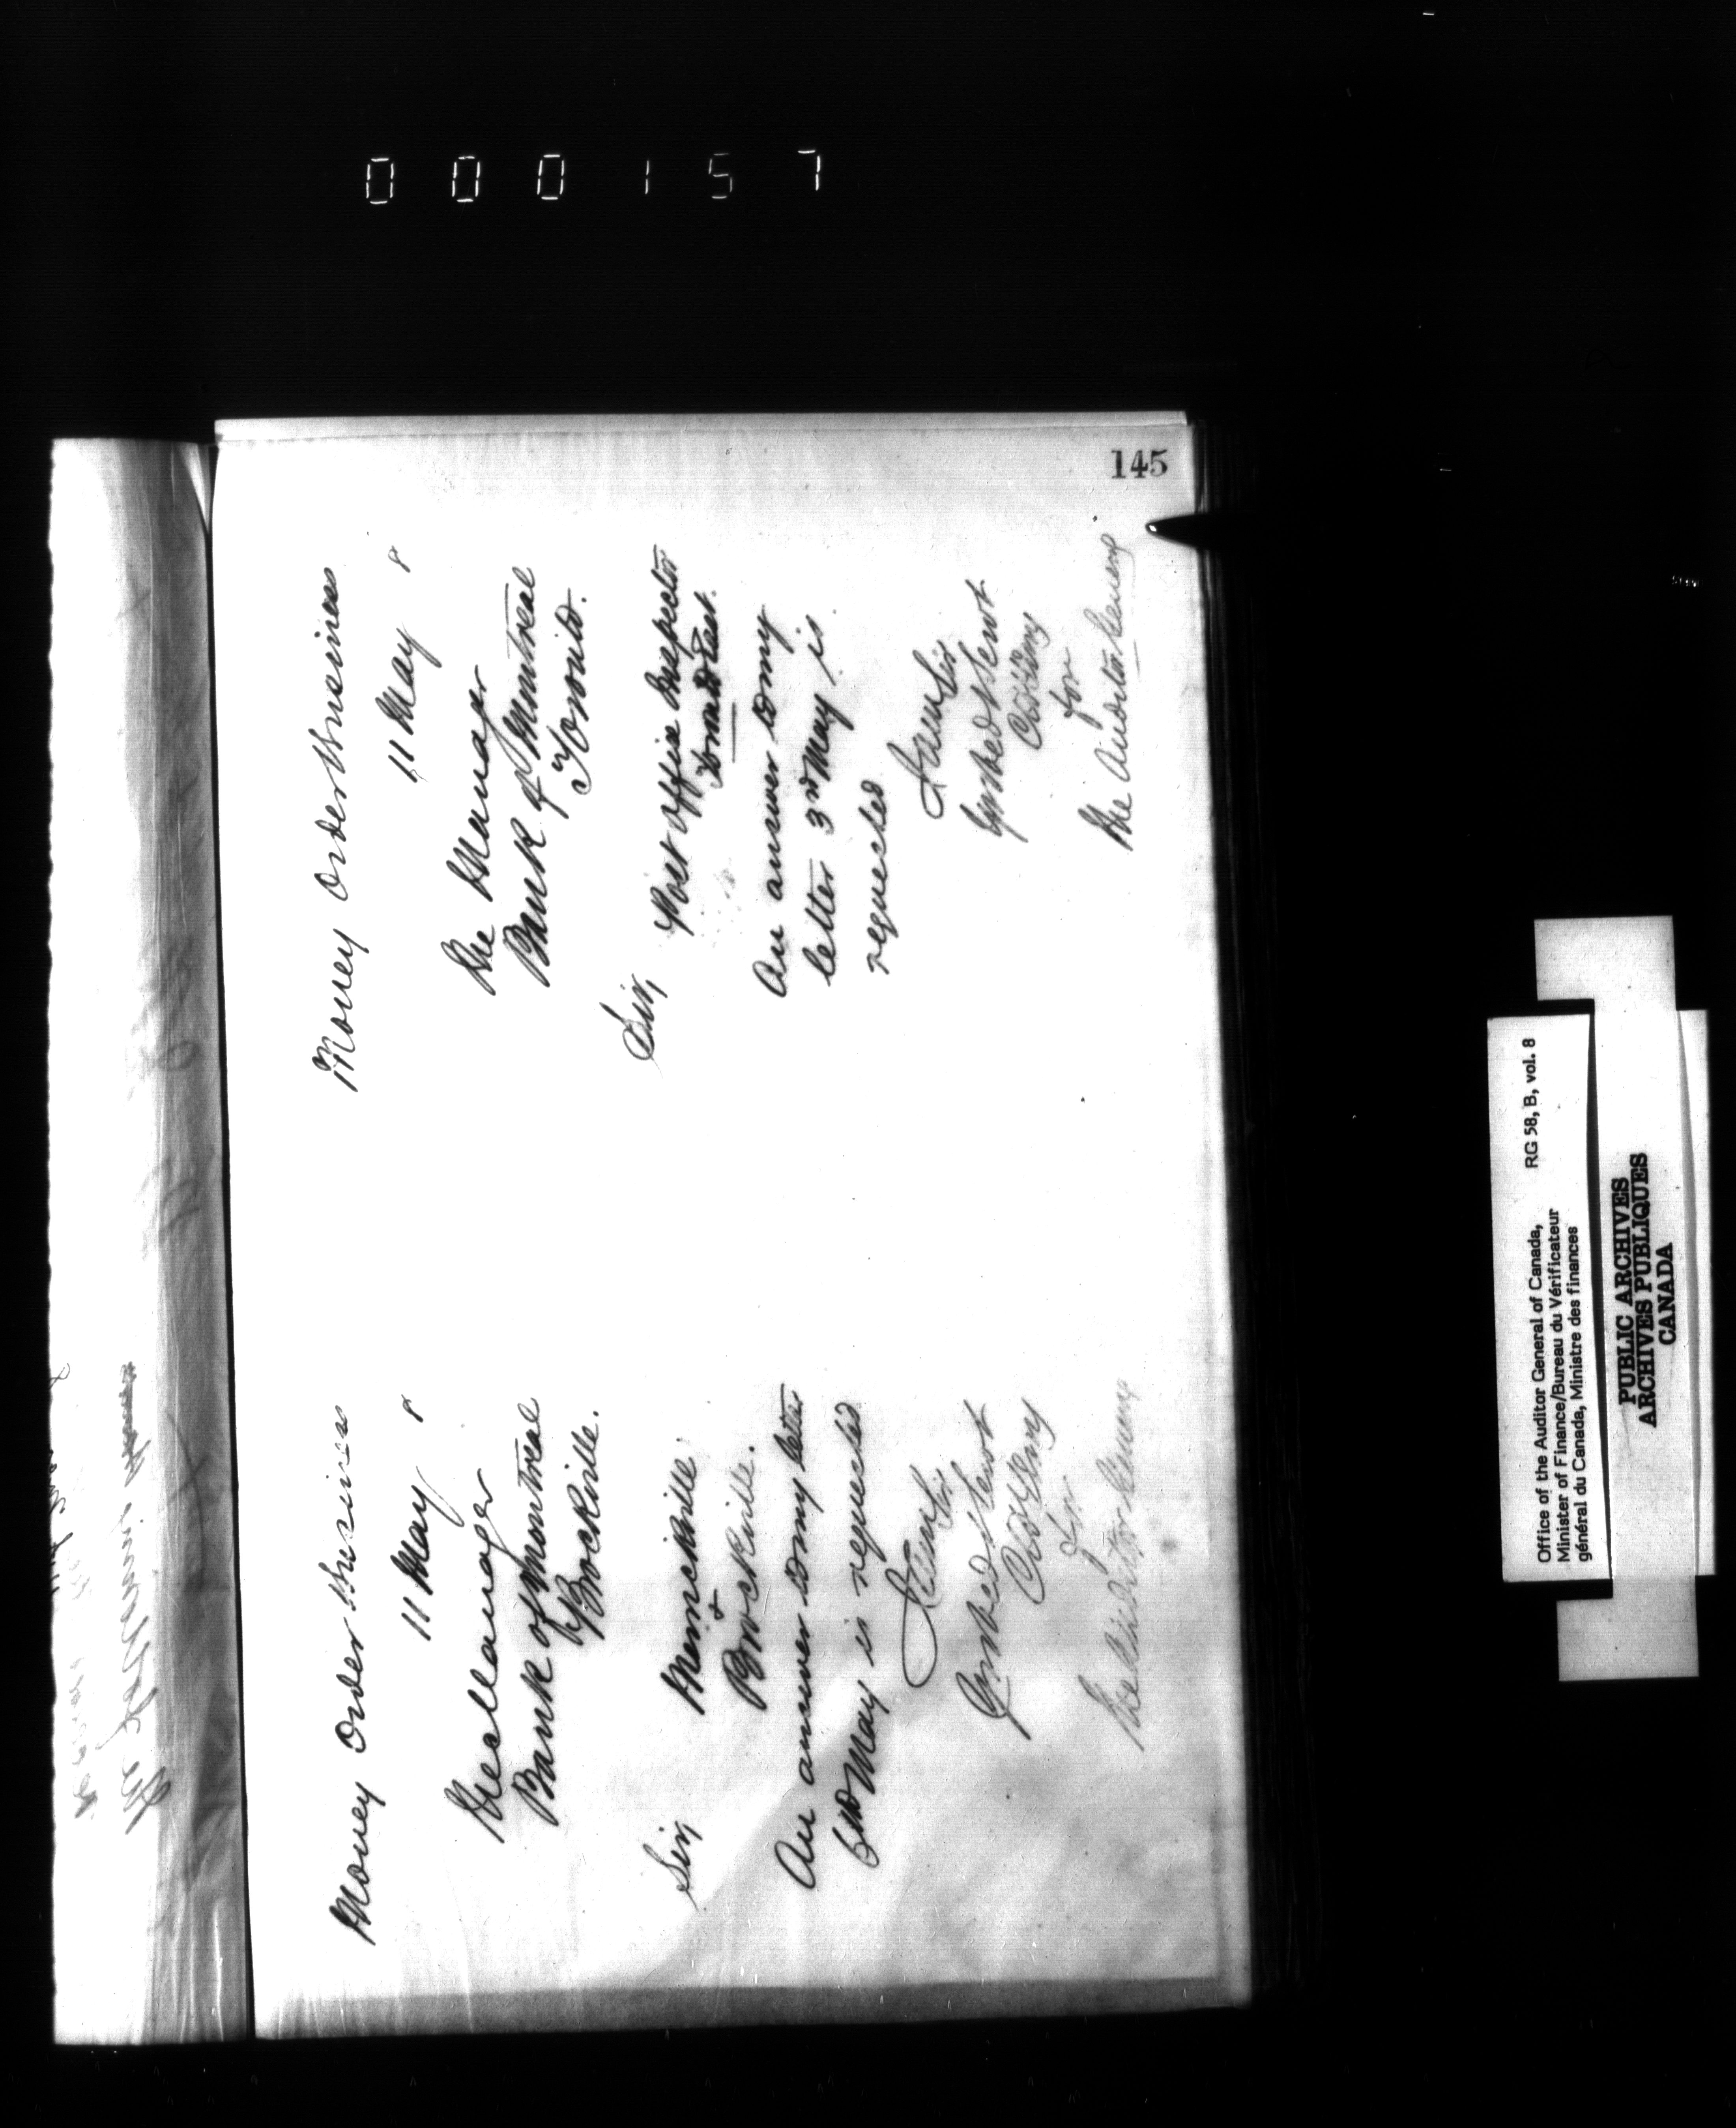 000157
145
Money Order Business
11 May 8
The Manager
Bank of Montreal
Brockville.
Sir,
Merrickville
&
Brockville.
An answer to my letter
May is requested
I am Sir
Yr obed Servt
for
The Auditor General
Money Order Business
11 May 8
The Manager
Bank of Montreal
Toronto.
Sir,
Post Office Inspector
Toronto East.
An answer to my
letter 3rd May is
requested
I am Sir
Yr obed Servt
for
The Auditor General
Office of the Auditor General of Canada, RG 58, B, vol. 8
Minister of Finance/Bureau du Vérificateur
général du Canada, Ministre des finances
PUBLIC ARCHIVES
ARCHIVES PUBLIQUES
CANADA